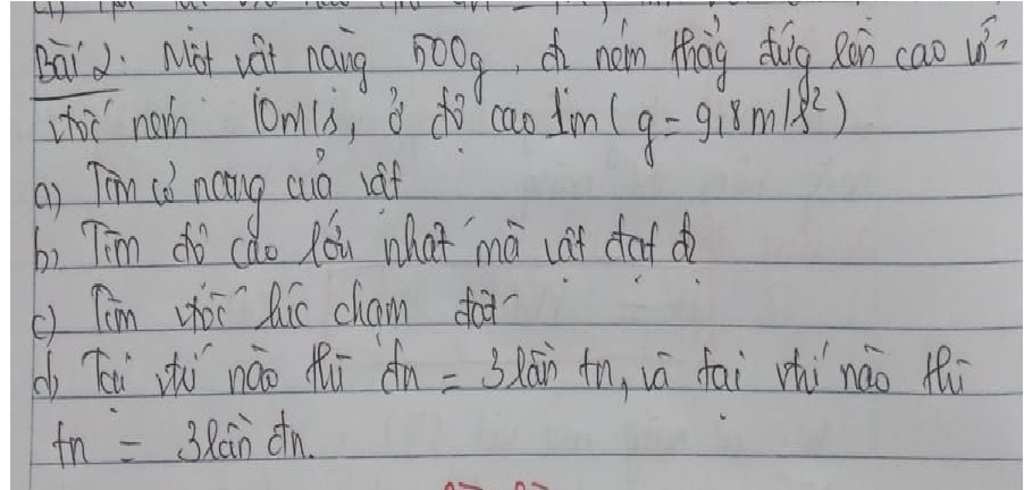 Bài 2. Một vật nặng 500g, đc ném thẳng đứng lên cao với
vtốc ném 10m/s, ở độ cao 1m (g = 9,8m/s²)
a) Tìm cơ năng của vật
b) Tìm độ cao lớn nhất mà vật đạt đc
c) Tìm vtốc lúc chạm đất
d) Tại vtrí nào thì đn = 3 lần tn, và tại vtrí nào thì
tn = 3 lần đn.